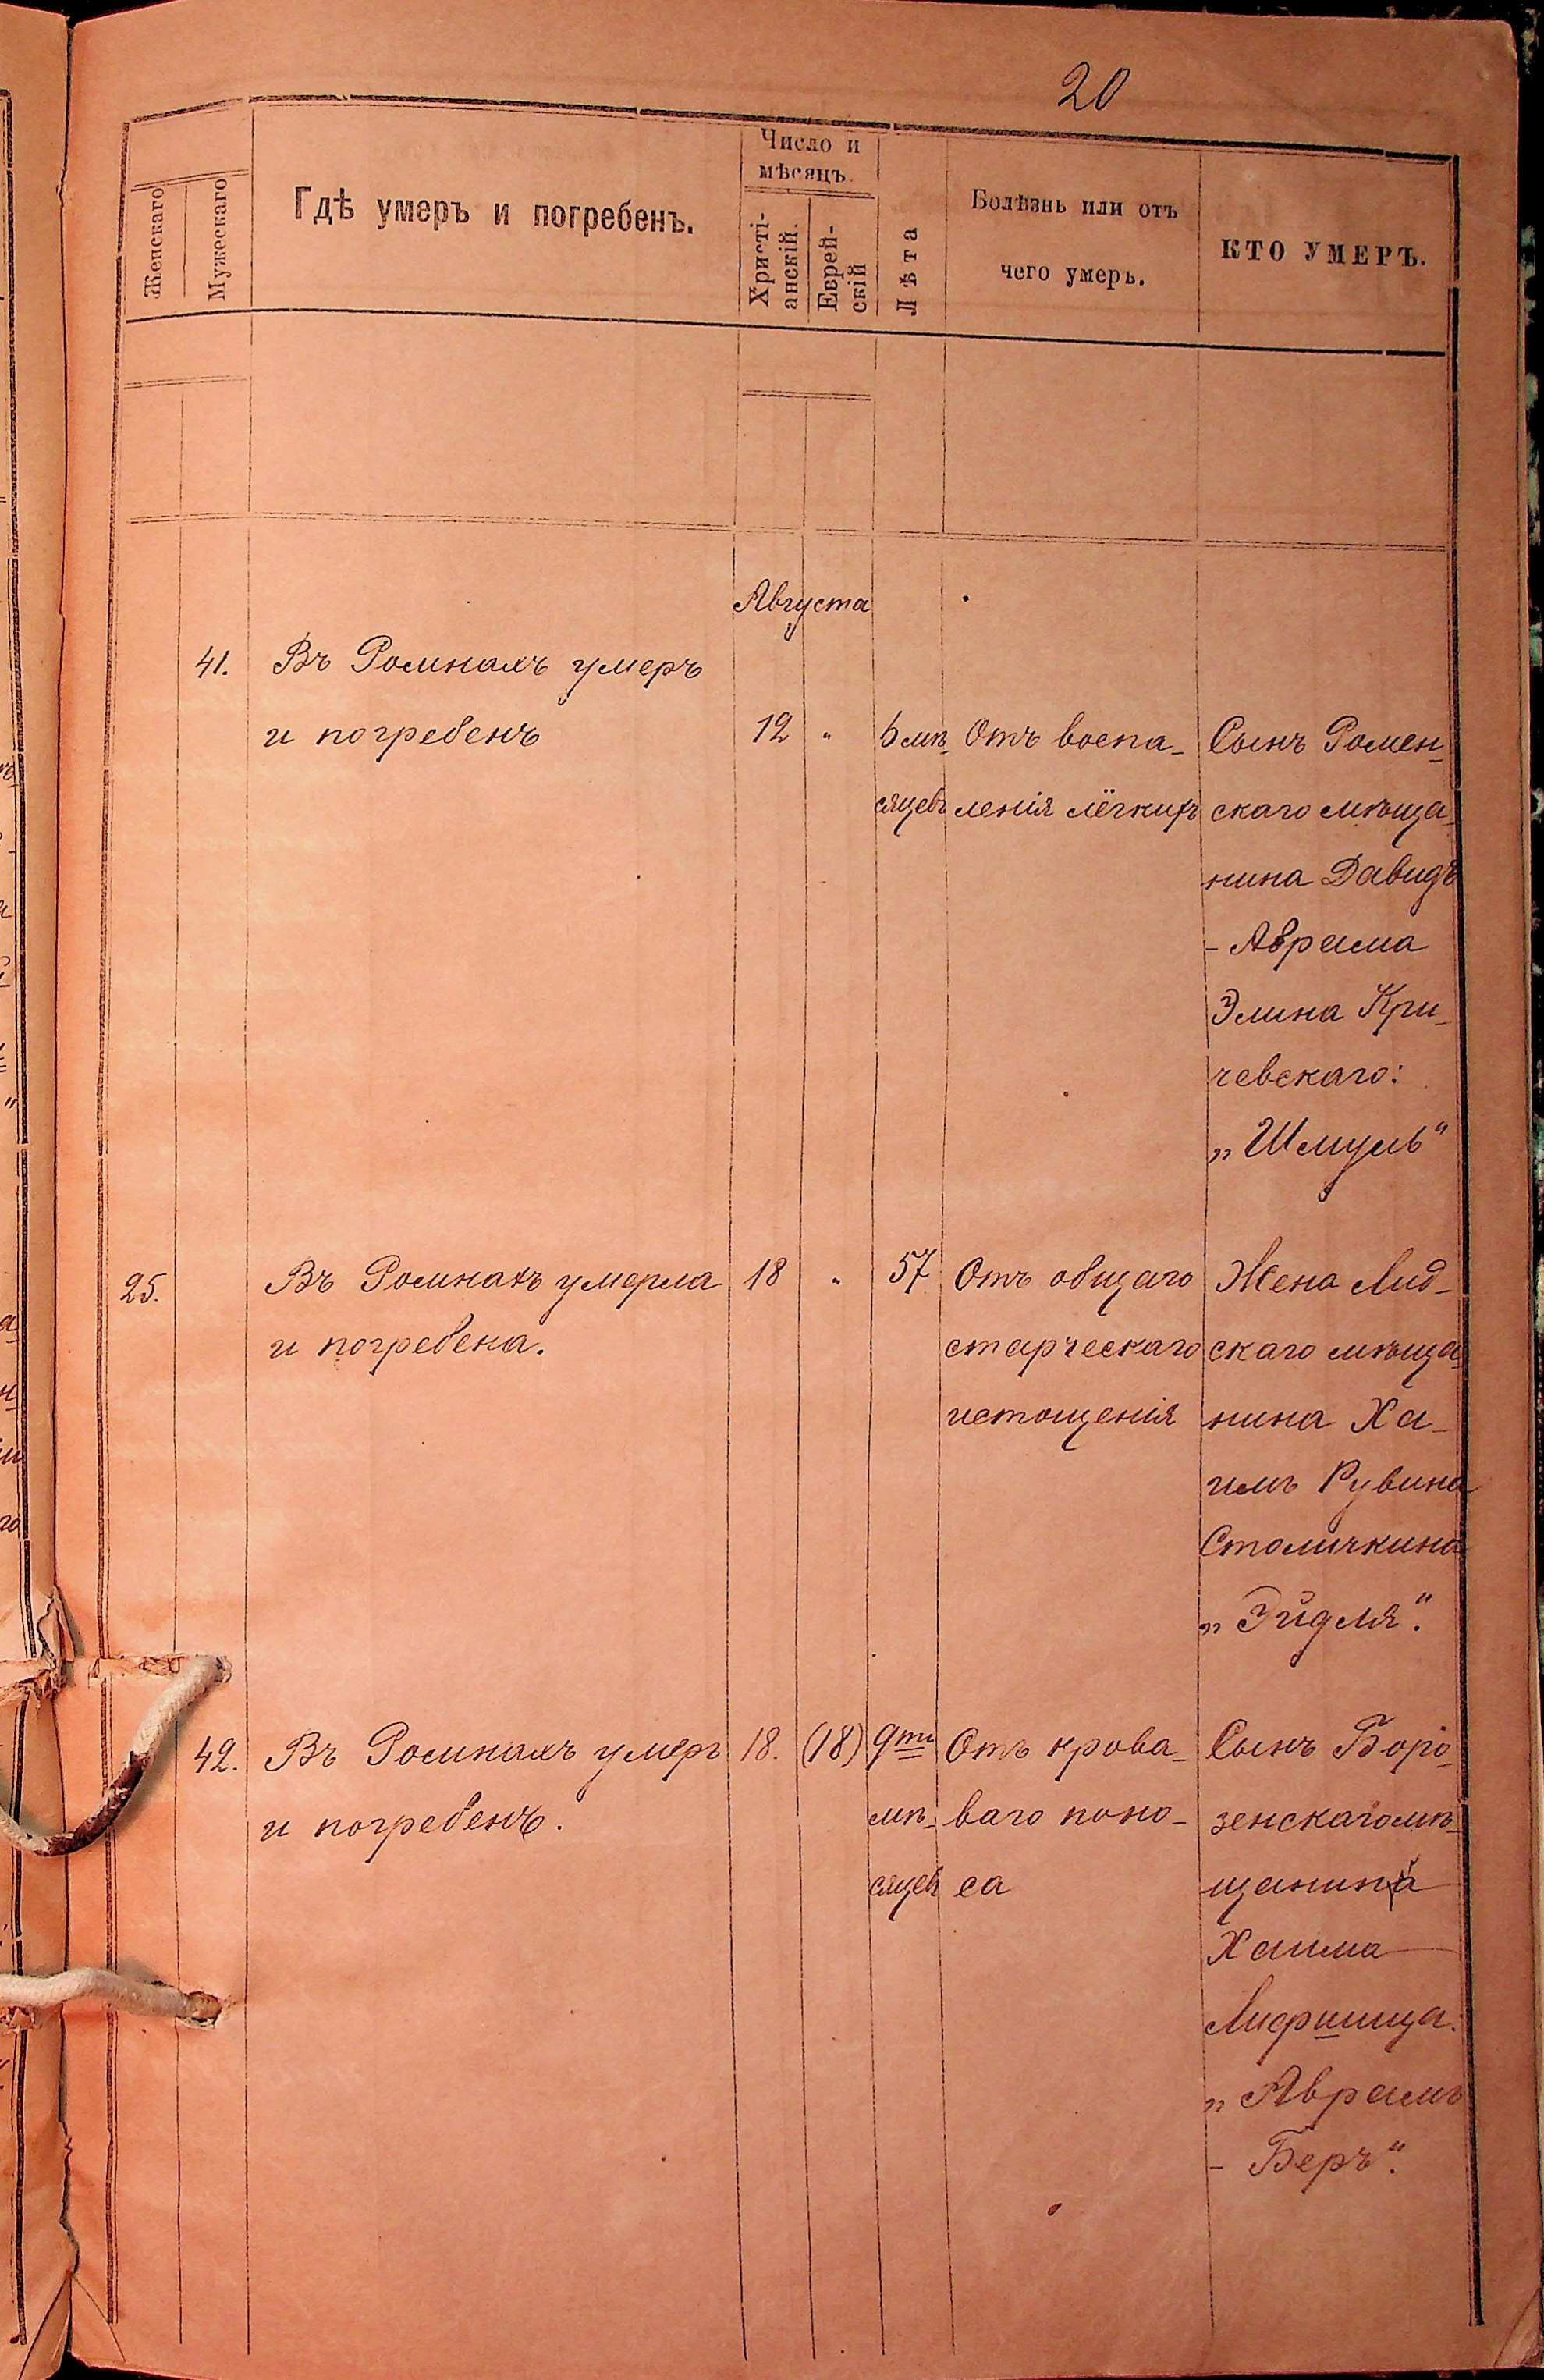 20
Женскаго
Мужескаго
Гдѣ умеръ и погребенъ.
Число и
мѣсяцъ.
Христі-
анскій.
Еврей-
скій
Лѣта
Болѣзнь или отъ
чего умеръ.
КТО УМЕРЪ.
Августа
41.
Въ Ромнахъ умеръ
и погребенъ
12 "
6 мѣ-
сяцевъ
Отъ воспа-
ленія лёгкихъ
Сынъ Ромен-
скаго мѣща-
нина Давидъ
- Абрама
Элина Кри-
чевскаго:
„Шмуль"
25.
Въ Ромнахъ умерла
и погребена.
18 "
57
Отъ общаго
старческаго
истощенія
Жена Лид-
скаго мѣща-
нина Ха-
имъ Рувина
Столичкина
„Эйдля".
42.
Въ Ромнахъ умеръ
и погребенъ.
18. (18)
9ти
мѣ-
сяцевъ
Отъ крова-
ваго поно-
са
Сынъ Боро-
зенскаго мѣ-
щанина
Хаима
Лифшица:
„Аврамъ
- Беръ".